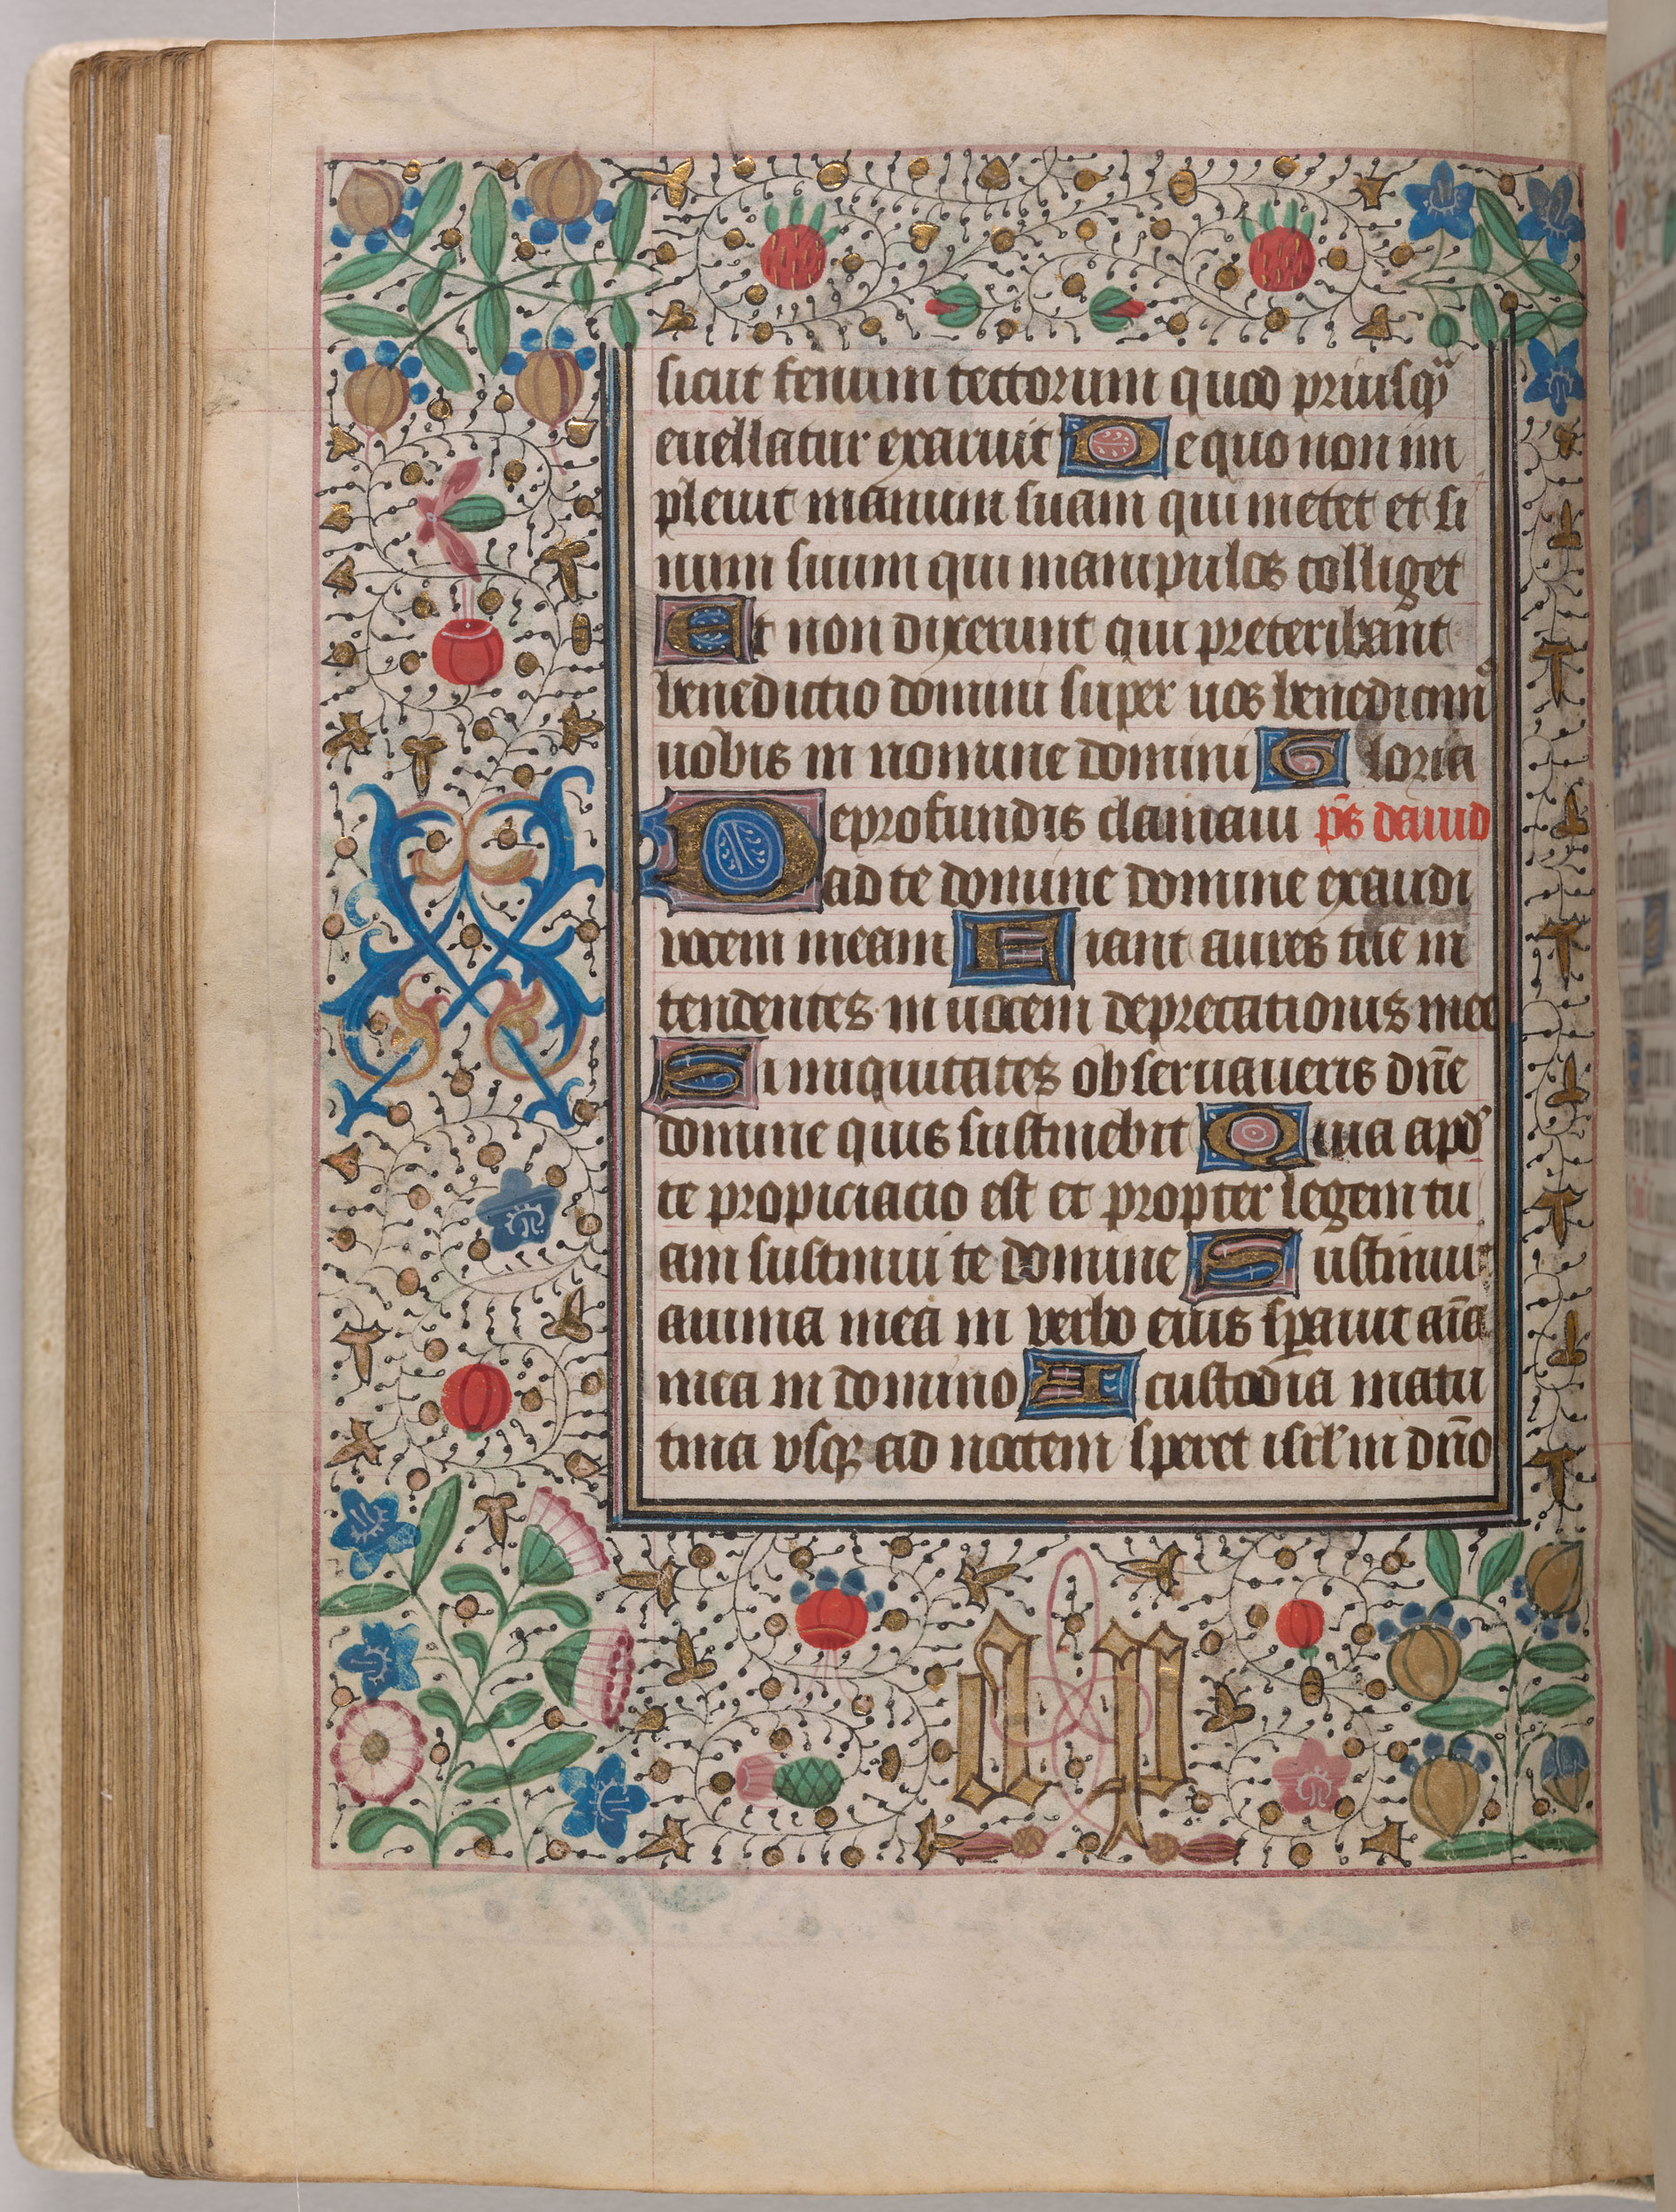 sicut fenum tectorum quod priusqͣ
euellatur exaruit De quo non im
pleuit manum suam qui metet et si
num suum qui manipulos colliget
Et non dixerunt qui preteribant
benedictio domini super uos benediximꝰ
uobis in nomine domini Gloria
De profundis clamaui p̄s dauid
ad te domine domine exaudi
uocem meam Fiant aures tue in
tendentes in uocem deprecationis mee
Si iniquitates obseruaueris dn̄e
domine quis sustinebit Quia apd̾
te propiciacio est et propter legem tu
am sustinui te domine Sustinuit
anima mea in verbo eius sꝑauit aīa
mea in domino A custodia matu
tina vsqꝫ ad noctem speret isrl̾ in dn̄o
d p